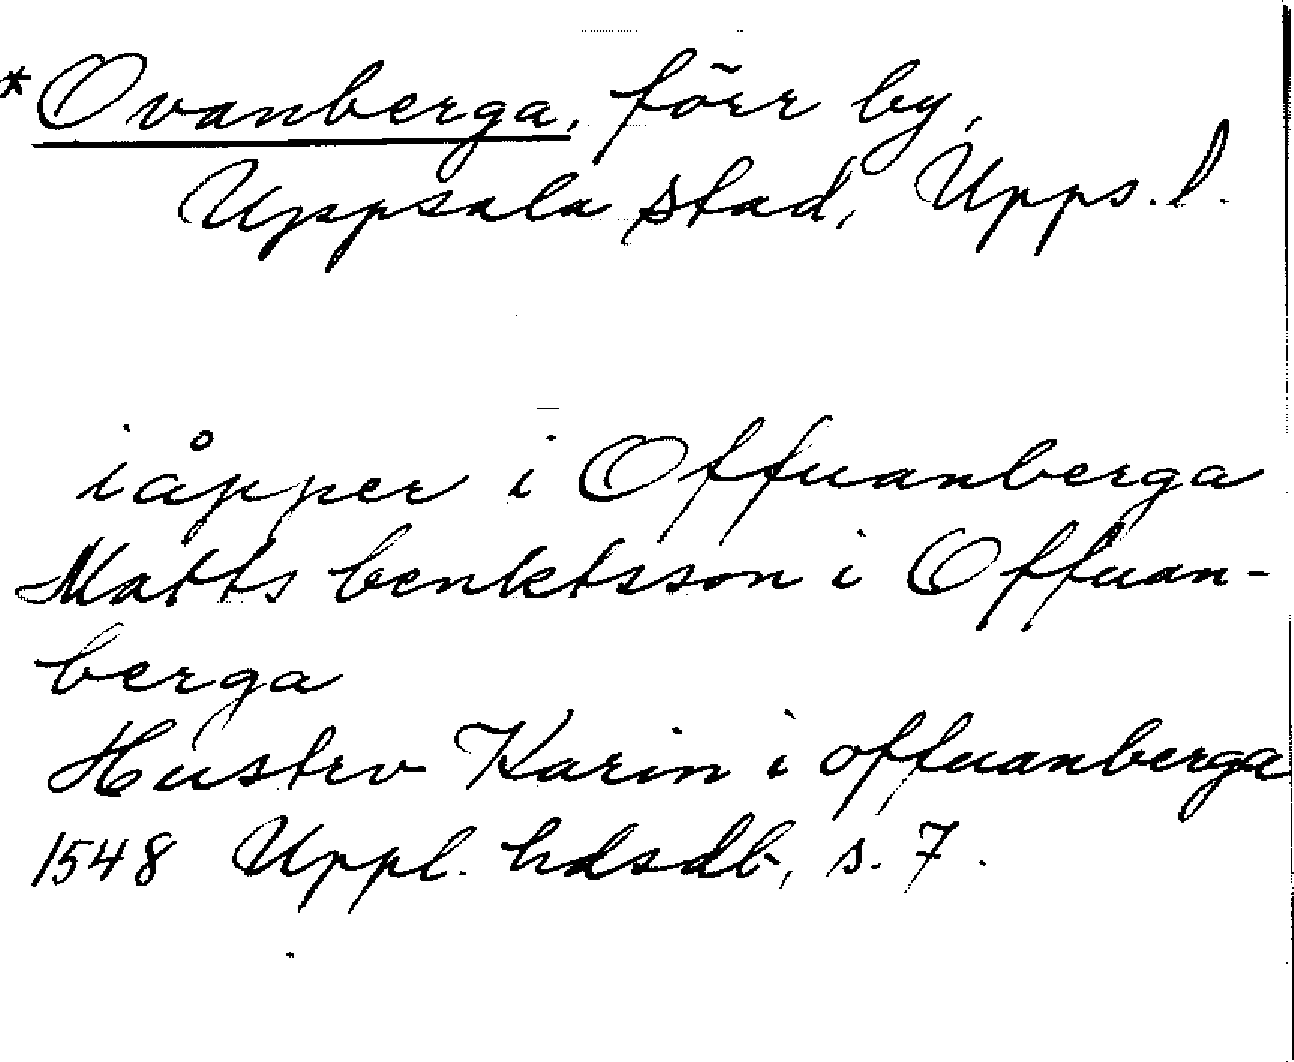 *Ovanberga, förr by,
Uppsala stad, Upps. l.
iåpper i Offuanberga
Matts benktsson i Offuan-
berga
Hustrv Karin i offuanberga
1548 Uppl. hdsdb, s. 7.